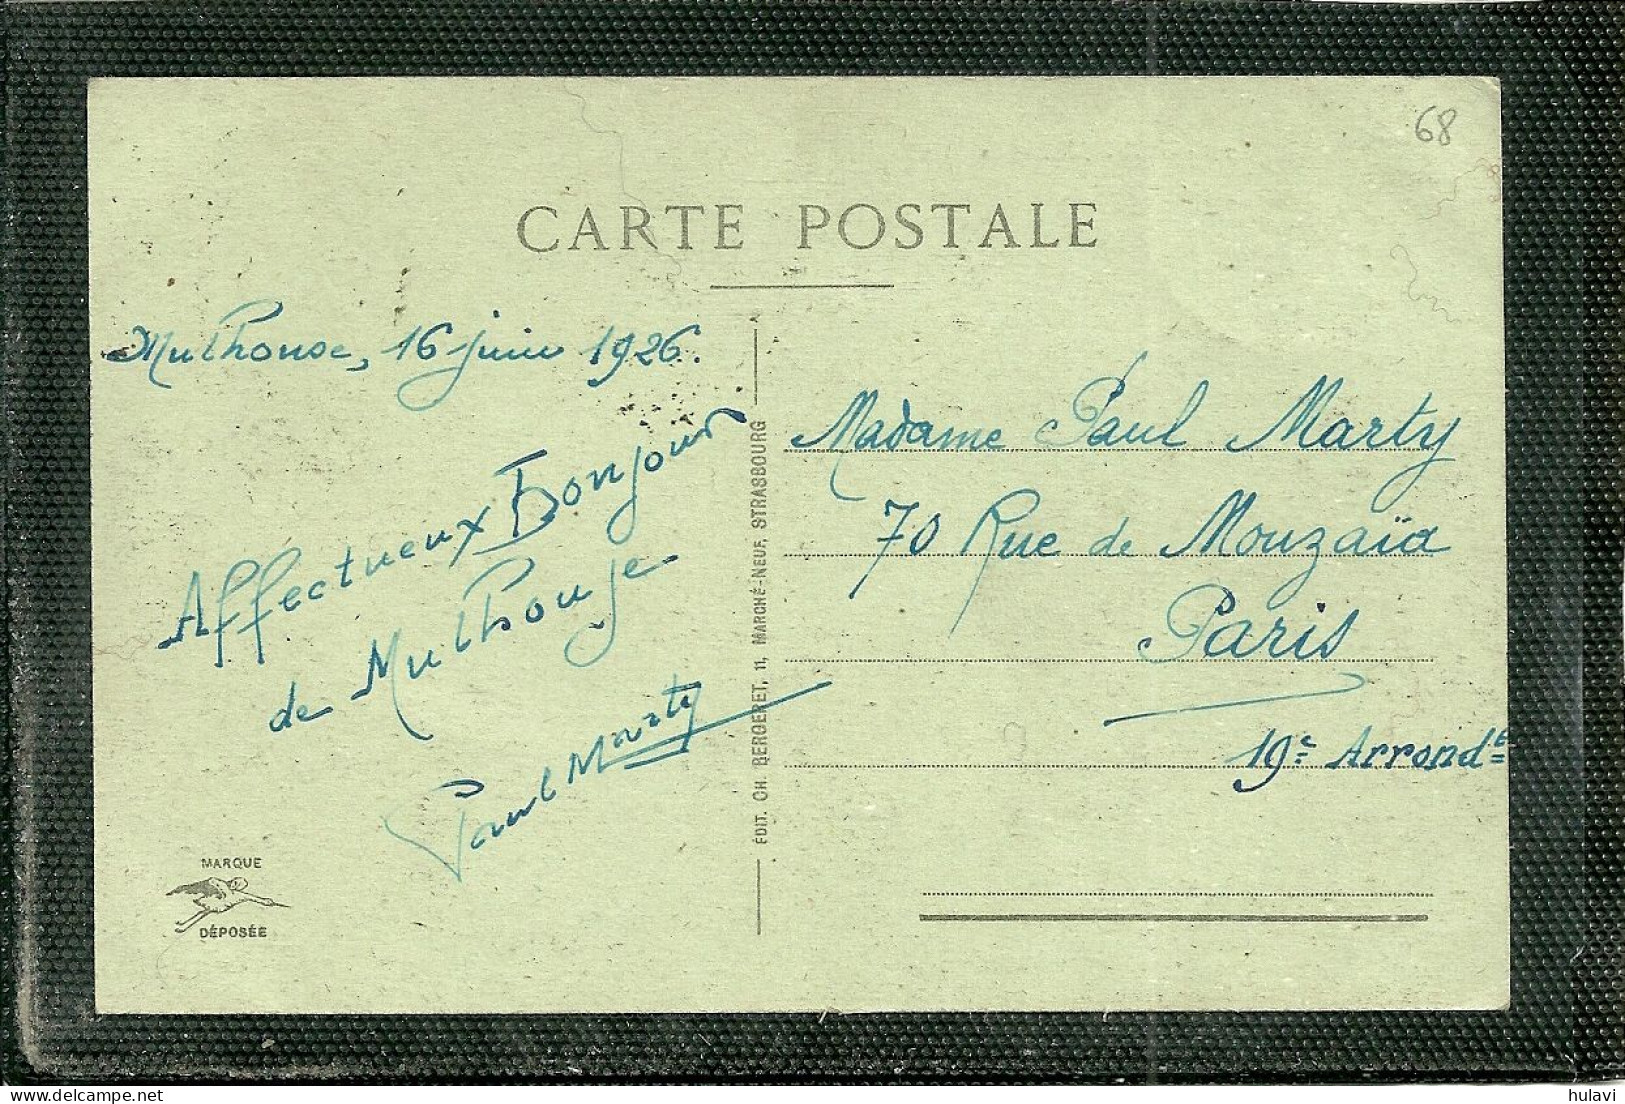 68
CARTE POSTALE
Mulhouse, 16 juin 1926.
Affectueux Bonjour
de Mulhouse
Paul Marty
MARQUE
DÉPOSÉE
ÉDIT. CH. BERGERET, 11, MARCHÉ-NEUF, STRASBOURG
Madame Paul Marty
70 Rue de Mouzaïa
Paris
19e Arrondt
hulavi